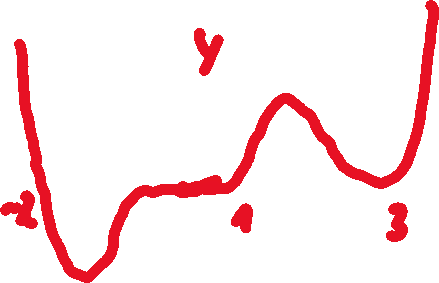 y
-2 1 3